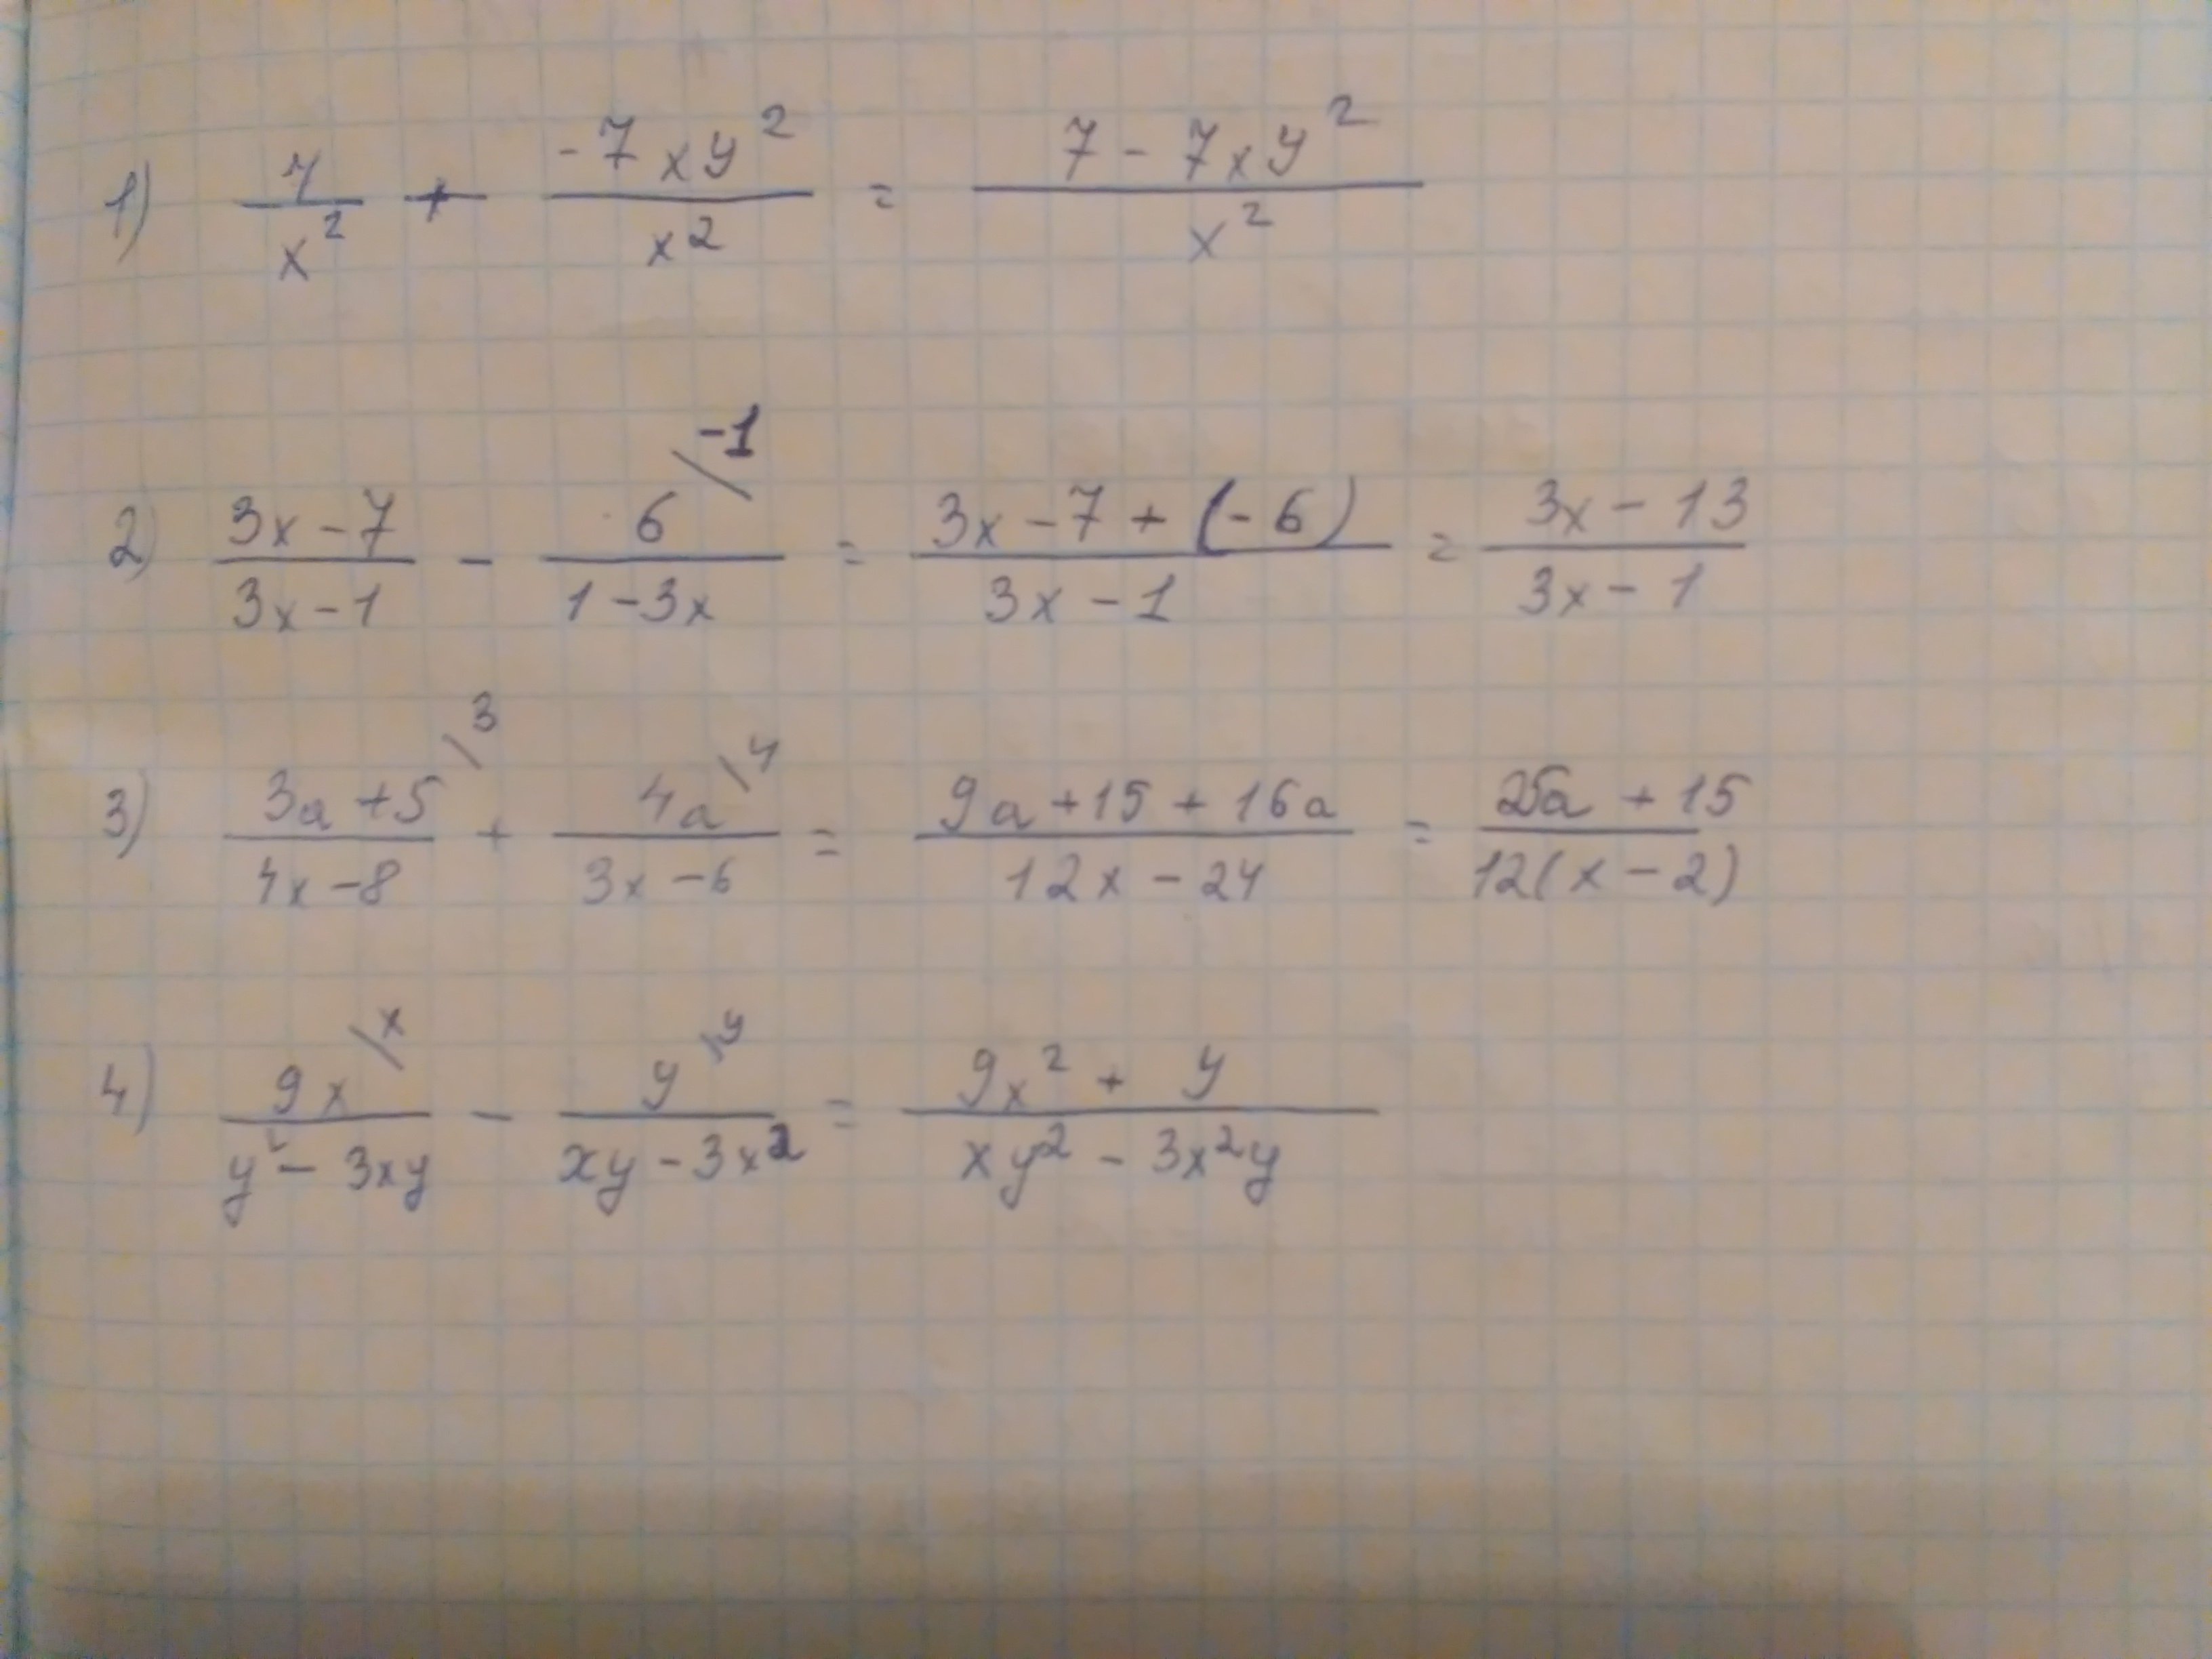 1) 7/x² + -7xy²/x² = 7-7xy²/x²
2) 3x-7/3x-1 - 6\-1/1-3x = 3x-7+(-6)/3x-1 = 3x-13/3x-1
3) 3a+5\3/4x-8 + 4a\4/3x-6 = 9a+15+16a/12x-24 = 25a+15/12(x-2)
4) 9x\x/y²-3xy - y\y/xy-3x² = 9x²+y/xy²-3x²y